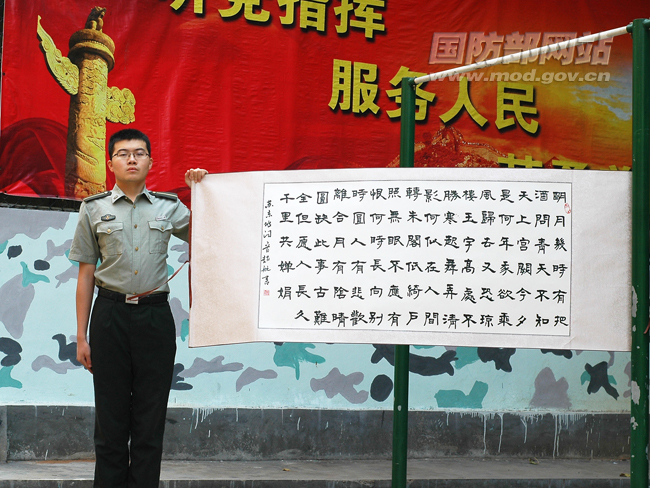 听党指挥
服务人民
国防部网站
www.mod.gov.cn
明月幾時有把
酒問青天不知
天上宮闕今夕
是何年我欲乘
風歸去又恐琼
樓玉宇高處不
勝寒起舞弄清
影何似在人間
轉朱閣低綺户
照無眠不應有
恨何時長向别
時圓人有悲歡
離合月有陰晴
圓缺此事古難
全但愿人長久
千里共嬋娟